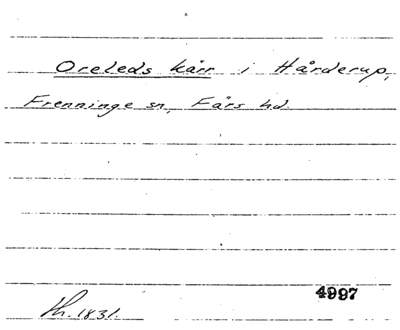 Oreleds kärr i Hårderup,
Frenninge sn, Färs hd
4997
Th. 1831.